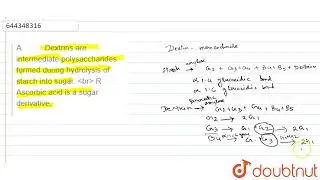 644348316
A Dextrins are
intermediate polysaccharides
formed during hydrolysis of
starch into sugar. <br> R
Ascorbic acid is a sugar
derivative.
Dextrin - monosaccharide
Starch amylase → G2 + G3 + G4 + + Dextrin
α 1-4 glucosidic bond
α 1-6 glucosidic bond
Dextrin → G2 + G3 + G4 +
G2 → 2G1
G3 → G1 + G2 → 2G1
G1 G3
doubtnut